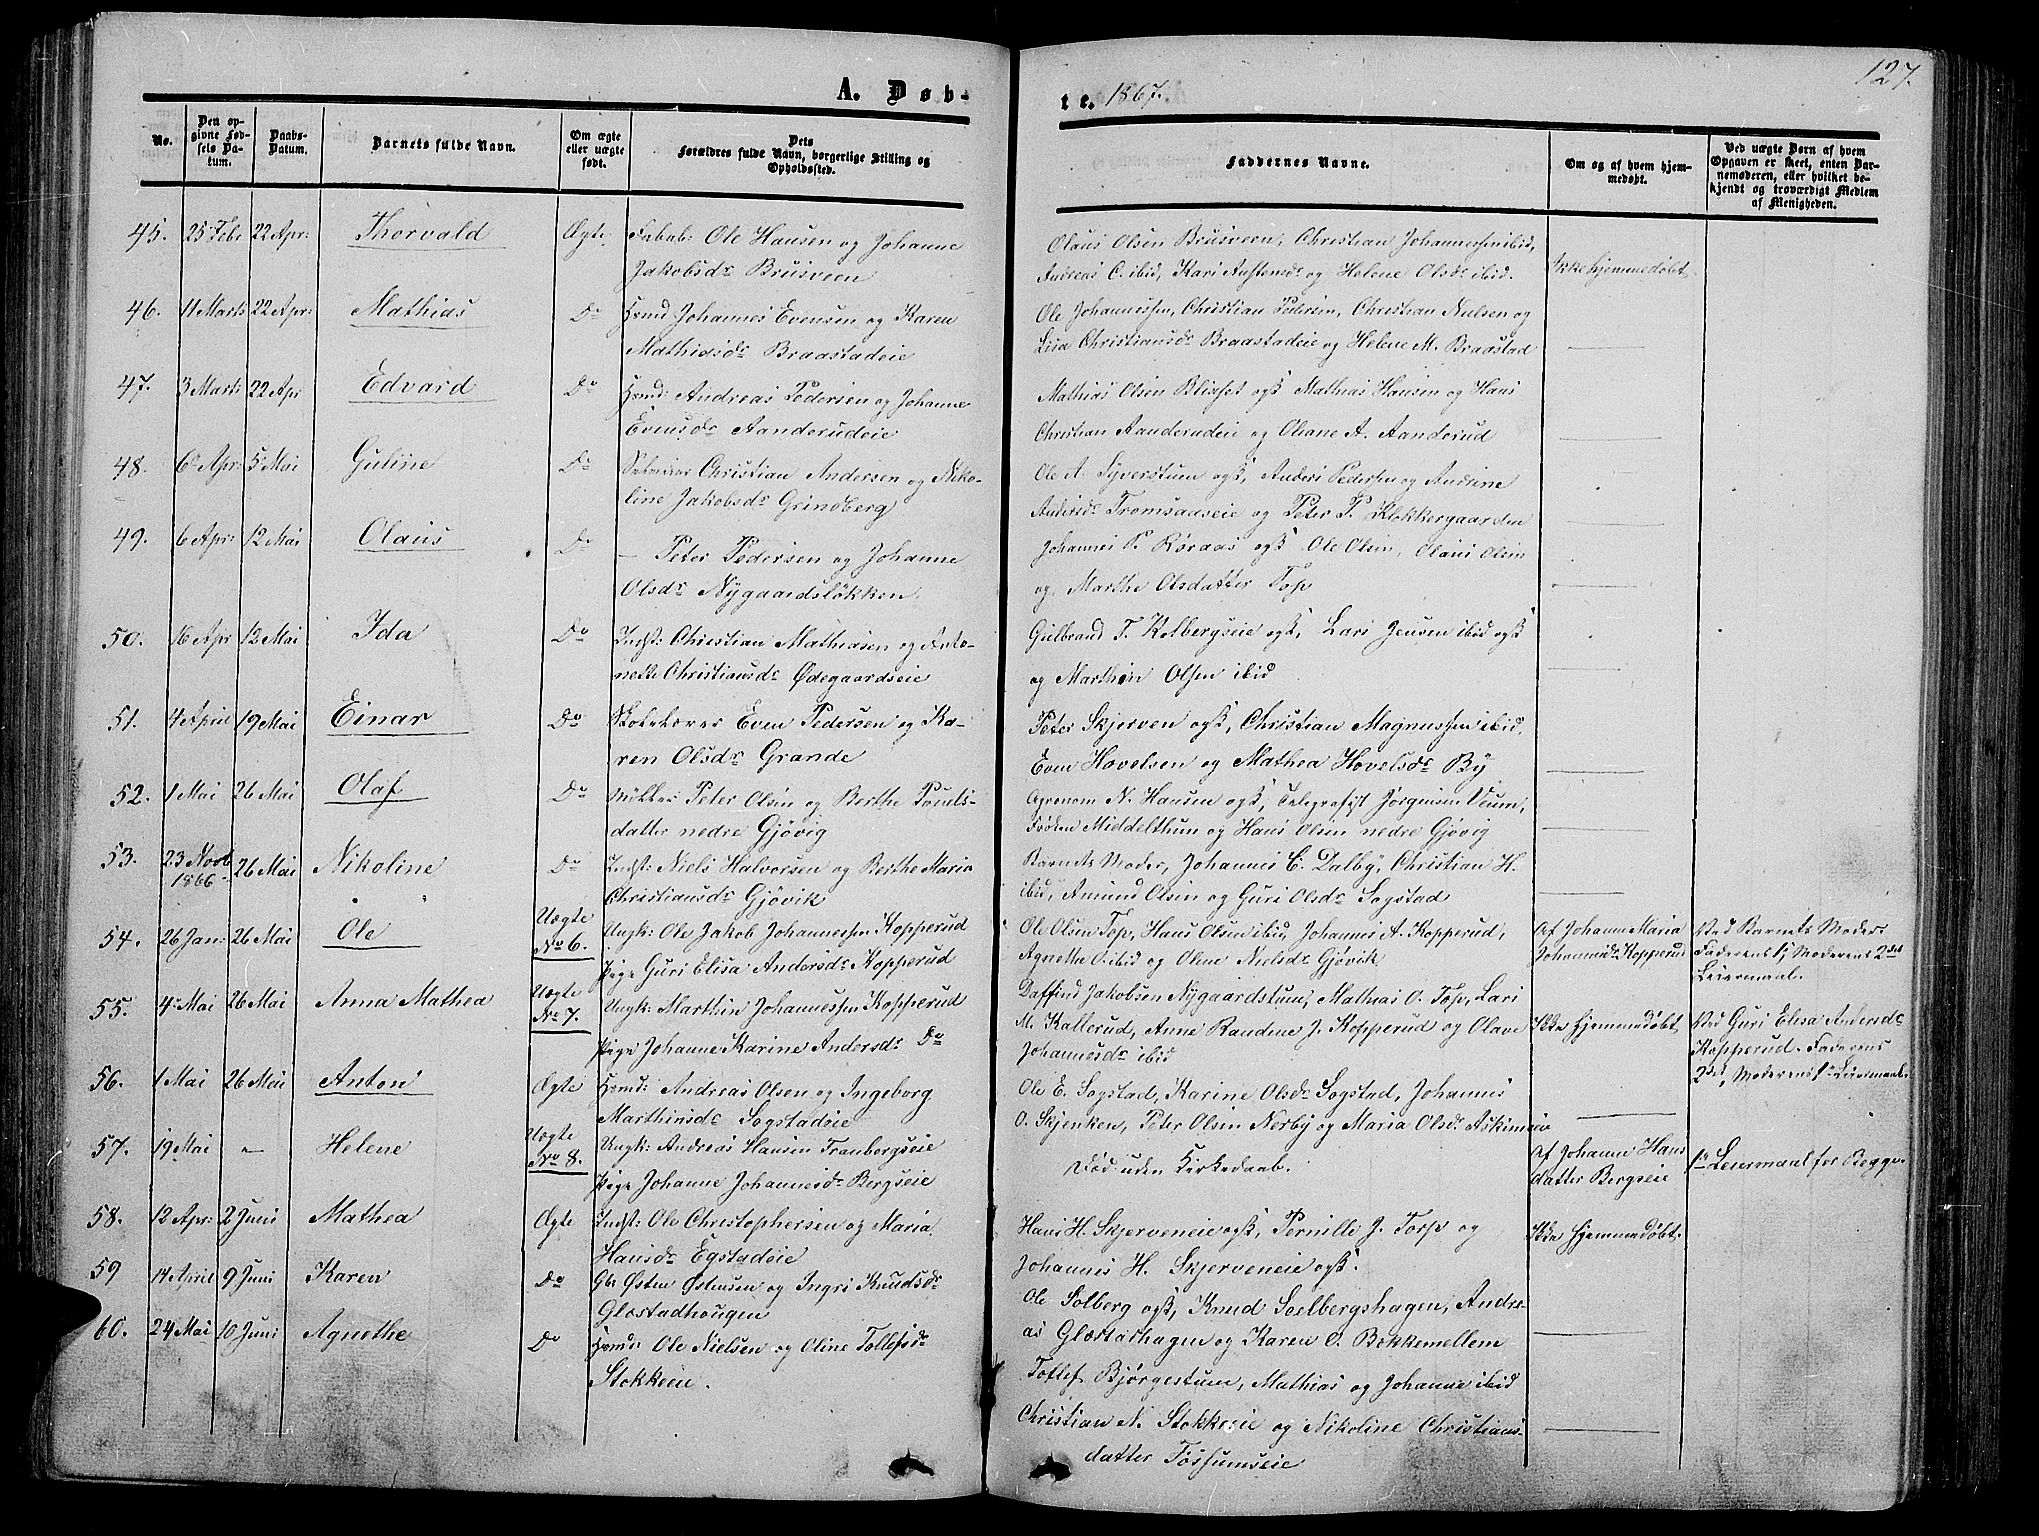 127.
A. Døb-
te. 1867.
No.
Den op-
givne Fød-
sels Da-
tum.
Daabs-
Datum.
Barnets fulde Navn.
Om ægte
eller uægte
født.
Dets
Forældres fulde Navn, borgerlige Stilling og
Opholdssted.
Faddernes Navne.
Om og af hvem hjem-
medøbt.
Ved uægte Børn af hvem
Opgaven er skeet, enten Bar-
nemoderen, eller hvilket be-
kjendt og troværdigt Medlem
af Menigheden.
45. 25 Febr 22 Apr: Thorvald Ægte Fabab: Ole Hansen og Johanne
Jakobsdr Brusveen
Olaus Olsen Brusveen, Christian Johannessen ibid,
Andreas C. ibid, Kari Anstensdr og Helene Olsdr ibid. Ikke hjemmedøbt
46. 11 Marts 22 Apr: Mathias Do Hmd Johannes Evensen og Karen
Mathiasdr Braastadeie
Ole Johannessen, Christian Pedersen, Christian Nielsen og
Lisa Christiansdr Braastadeie og Helene M. Braastad
47. 3 Marts 22 Apr Edvard Do Hmd: Andreas Pedersen og Johanne
Evensdr Aanderudeie
Mathias Olsen Blisset ogs, Mathias Hansen og Hans
Christian Aanderudeie og Oliane A. Aanderud
48. 6 Apr: 5 Mai Guline Do Selveier Christian Andersen og Niko-
line Jakobsdr Grindberg
Ole A. Syverstum ogs, Anders Pedersen og Andrine
Andersdr Tromsaaseie og Peter P. Klokkergaarden
49. 6 Apr: 12 Mai Olaus Do – Peter Pedersen og Johanne
Olsdr Nygaardsløkken.
Johannes P. Røraas ogs Ole Olsen, Olaus Olsen
og Marthe Olsdatter Top
50. 16 Apr 12 Mai Ida Do Indst: Christian Mathiasen og Anto-
nette Christiansdr Ødegaardseie
Gulbrand T. Kolbergseie ogs, Lars Jensen ibid ogs
og Marthin Olsen ibid
51. 4 April 19 Mai Einar Do Skolelærer Even Pedersen og Ka-
ren Olsdr Grande
Peter Skjerven ogs, Christian Magnussen ibid,
Even Hovelsen og Mathea Hovelsdr By
52. 1 Mai 26 Mai Olaf Do Møller Peter Olsen og Berthe Pouls-
datter nedre Gjøvig
Agronom N. Hansen ogs, Telegrafist Jørgensen Veum,
Frøken Middelthun og Hans Olsen nedre Gjøvig
53. 23 Novb 1866 26 Mai Nikoline Do Indst: Niels Halvorsen og Berthe Maria
Christiansdr Gjøvik
Barnets Moder, Johannes C. Dalby, Christian H.
ibid, Amund Olsen og Guri Olsdr Sogstad
54. 26 Jan: 26 Mai Ole Uægte No 6. Ungk: Ole Jakob Johannessen Kopperud
Pige Guri Elisa Andersdr Kopperud
Ole Olsen Top, Hans Olsen ibid, Johannes A. Kopperud,
Agnethe O. ibid og Oline Nielsdr Gjøvik
Af Johanne Maria
Johannesdr Kopperud
Ved Barnets Moder
Faderens 1, Moderens 2det
Leiermaal.
55. 4 Mai 26 Mai Anna Mathea Uægte No 7. Ungk: Marthin Johannessen Kopperud
Pige Johanne Karine Andersdr Do
Daffind Jakobsen Nygaardstum, Mathias O. Top, Lars
M. Kallerud, Anne Randine J. Kopperud og Olave
Johannesdr ibid
Ikke hjemmedøbt
Ved Guri Elisa Andersdr
Kopperud. Faderens
2det, Moderens 1te Leiermaal.
56. 1 Mai 26 Mai Anton Ægte Hmd: Andreas Olsen og Ingeborg
Marthinsdr Sogstadeie
Ole E. Sogstad, Karine Olsdr Sogstad, Johannes
O. Skjenken, Peter Olsen Nerby og Maria Olsdr Askimeie
57. 19 Mai – Helene Uægte No 8. Ungk: Andreas Hansen Tranbergseie
Pige Johanne Johannesdr Bergseie
Død uden Kirkedaab.
Af Johanne Hans
datter Bergseie
1te Leiermaal for Begge
58. 12 Apr: 2 Juni Mathea Ægte Indst: Ole Christophersen og Maria
Hansdr Egstadeie
Hans H. Skjerveneie ogs, Pernille J. Torp og
Johannes H. Skjerveneie ogs.
Ikke hjemmedøbt.
59 14 April 9 Juni Karen Do Gbr Østen Østensen og Ingri Knudsdr
Glæstadhougen
Ole Solberg ogs, Knud Soelbergshagen, Andre-
as Glæstadhagen og Karen O. Bækkemellem
60. 24 Mai 10 Juni Agnethe Do Hmd: Ole Nielsen og Oline Tollefsdr
Stokkeie.
Tollef Bjørgestum, Mathias og Johanne ibid
Christian N. Stokkeeie og Nikoline Christians-
datter Fossumseie